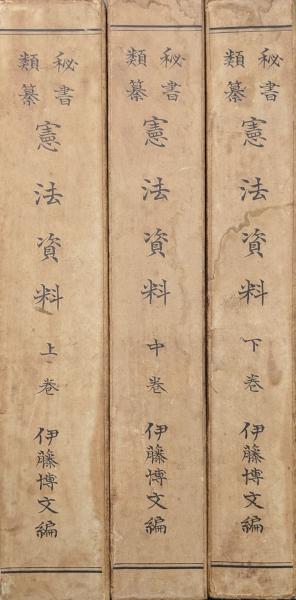 秘書類纂
憲法資料
上巻
伊藤博文編
秘書類纂
憲法資料
中巻
伊藤博文編
秘書類纂
憲法資料
下巻
伊藤博文編